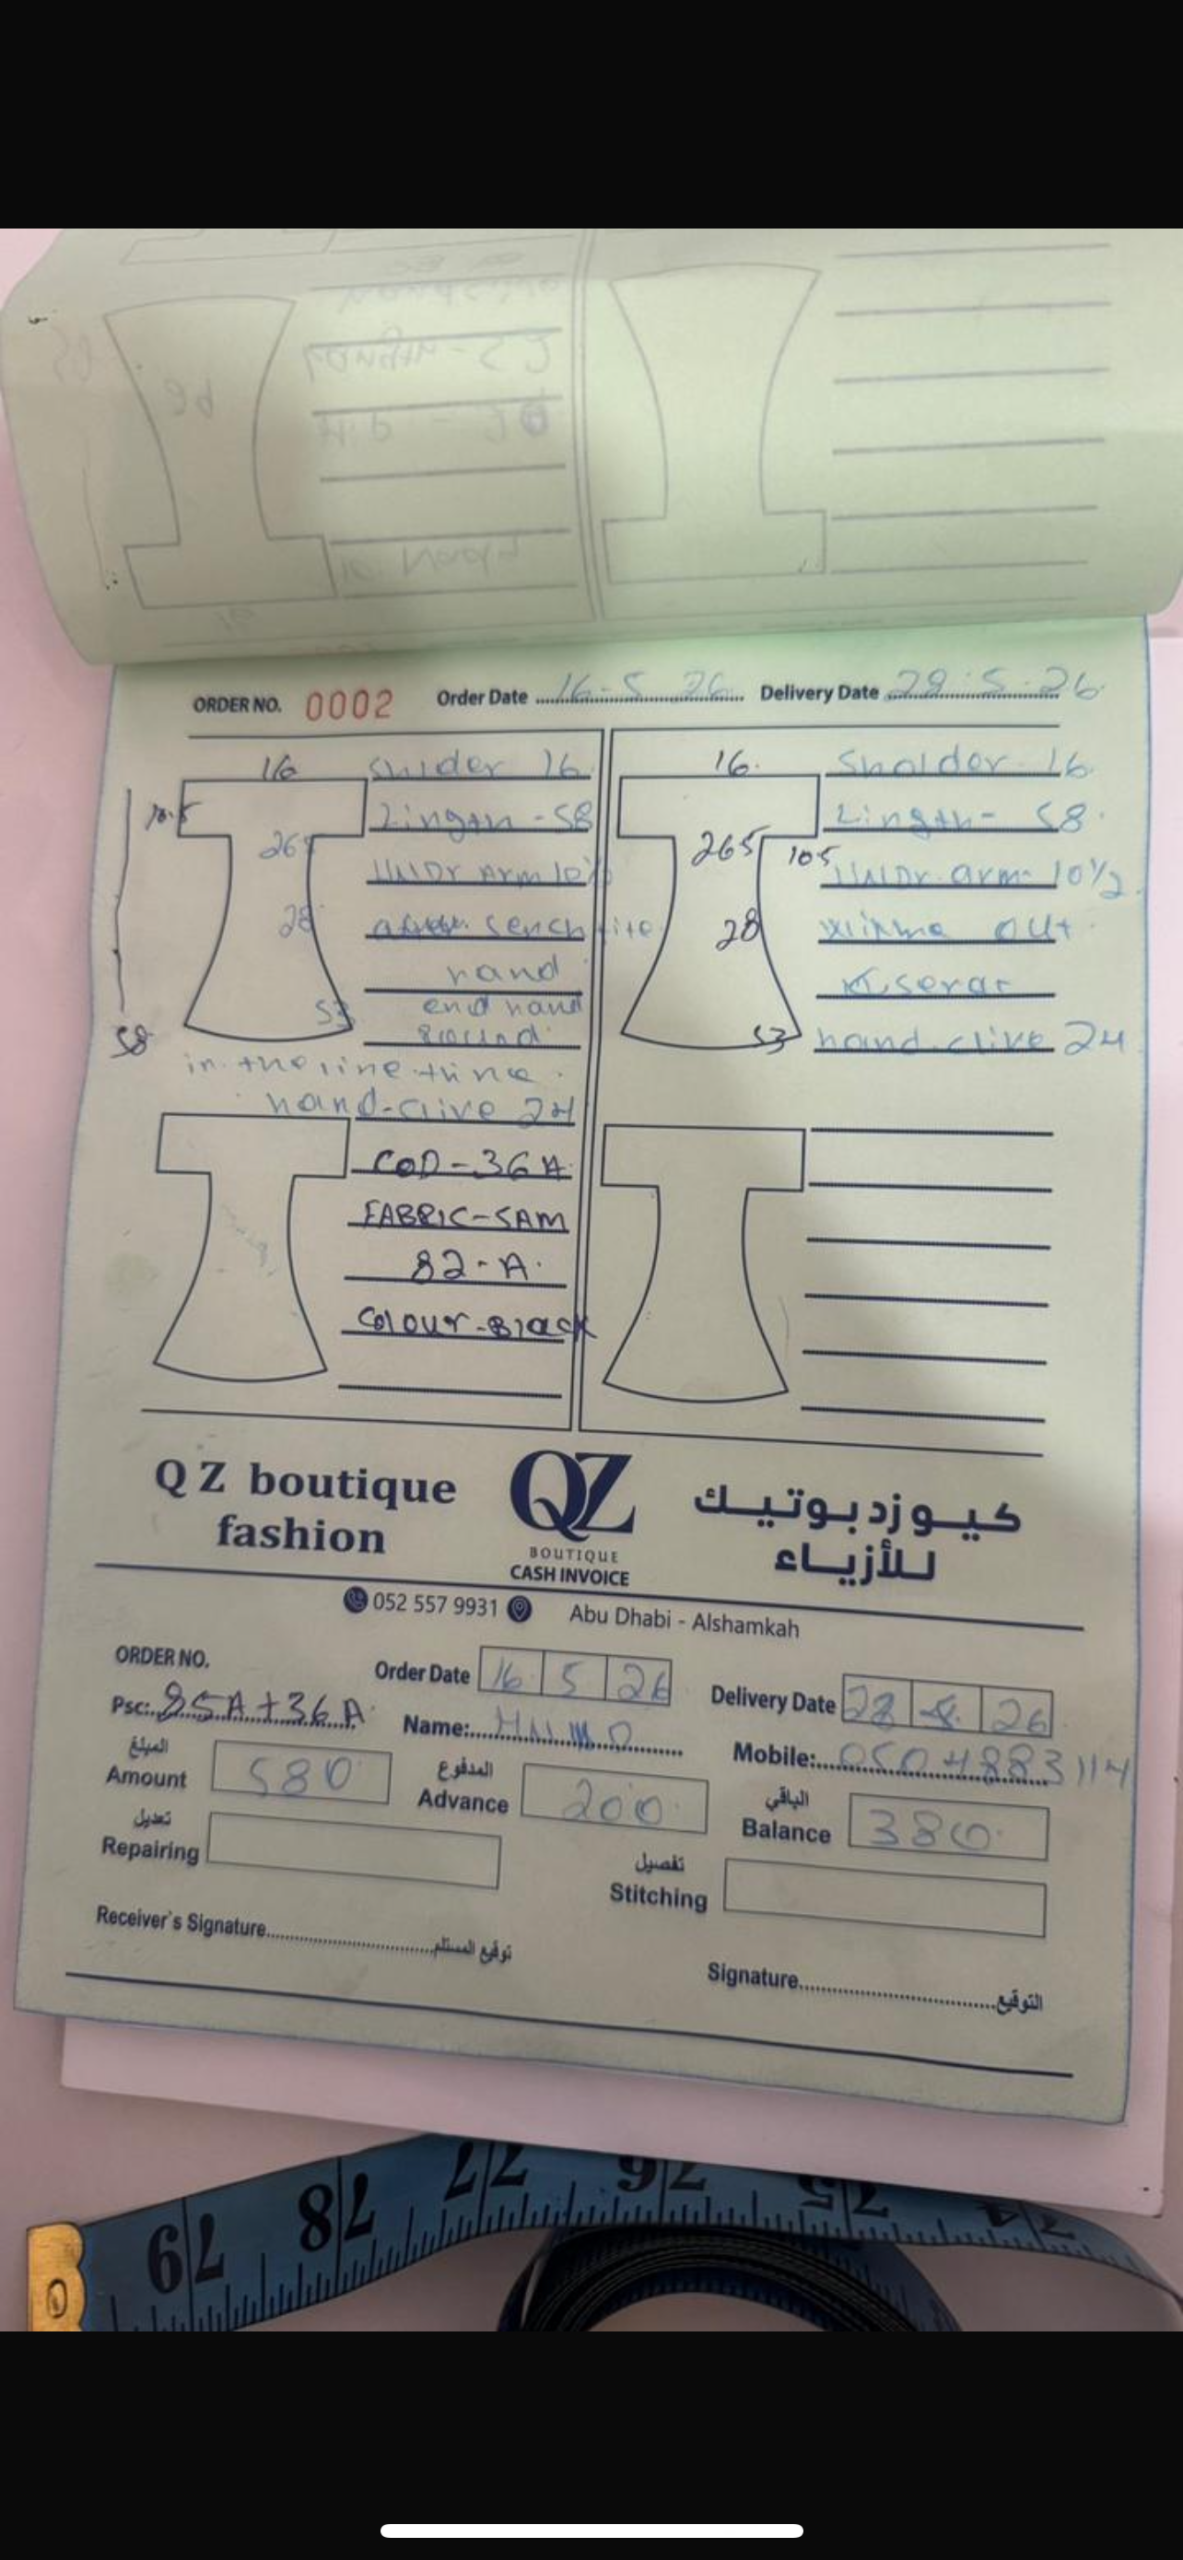 ORDER NO. 0002 Order Date 16-5 26 Delivery Date 28.5.26
16 Shider 16
10.5 Lingth - 58
265 UNDr Arm 10½
28 Sench
hand
53 end hand
58 round
in the line
hand-clive 24
16. Sholder 16
Lingth - 58
265 105 UNDr arm 10½
28 out
53 hand clive 24
COD-36 A
FABRIC-SAM
82-A
Colour-Black
Q Z boutique fashion
QZ
BOUTIQUE
CASH INVOICE
كيو زد بوتيك
للأزياء
052 557 9931 Abu Dhabi - Alshamkah
ORDER NO. Order Date 16 5 26 Delivery Date 28 5 26
Psc: 25A+36A Name: Mobile: 0504883114
المبلغ المدفوع الباقي
Amount 580 Advance 200 Balance 380
تعديل تفصيل
Repairing Stitching
Receiver's Signature توقيع المستلم
Signature التوقيع
79 78 77 76 75 74